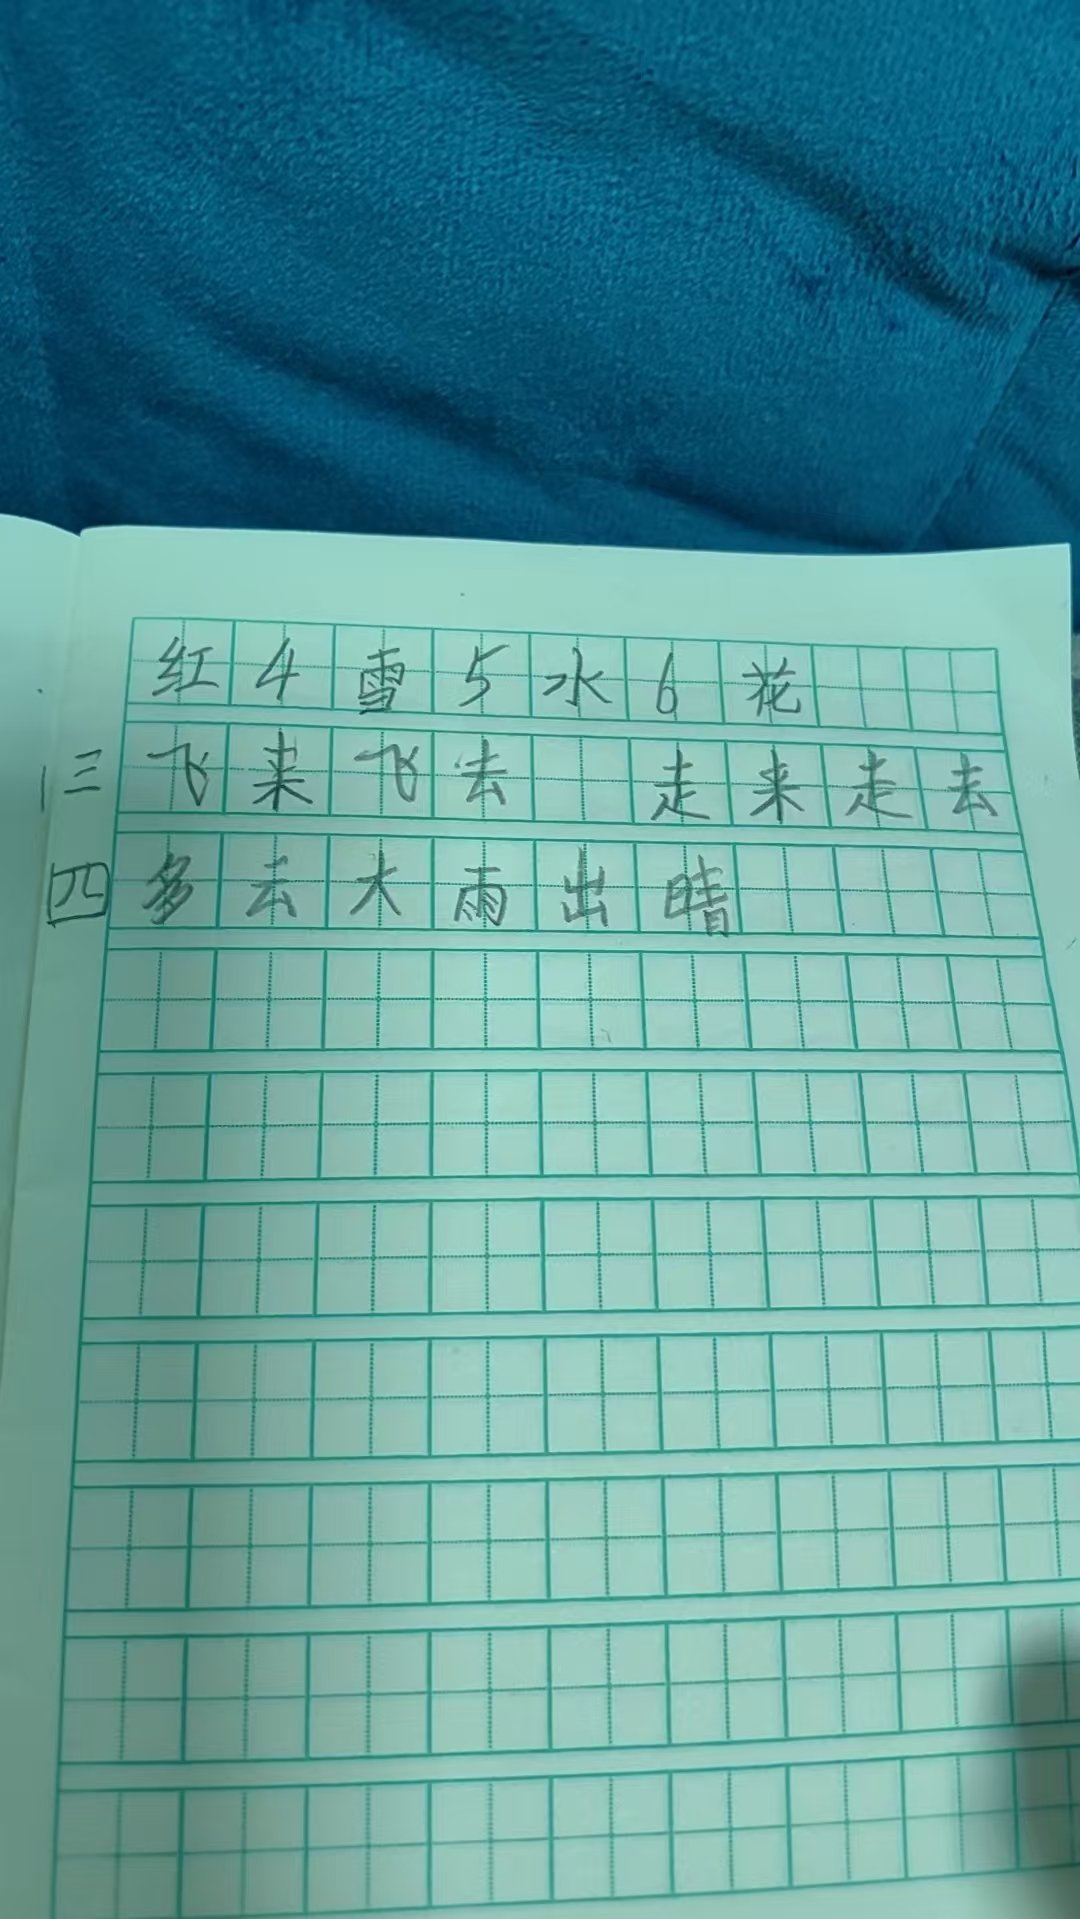 红4雪5水6花
三 飞来飞去 走来走去
四 多云大雨出晴